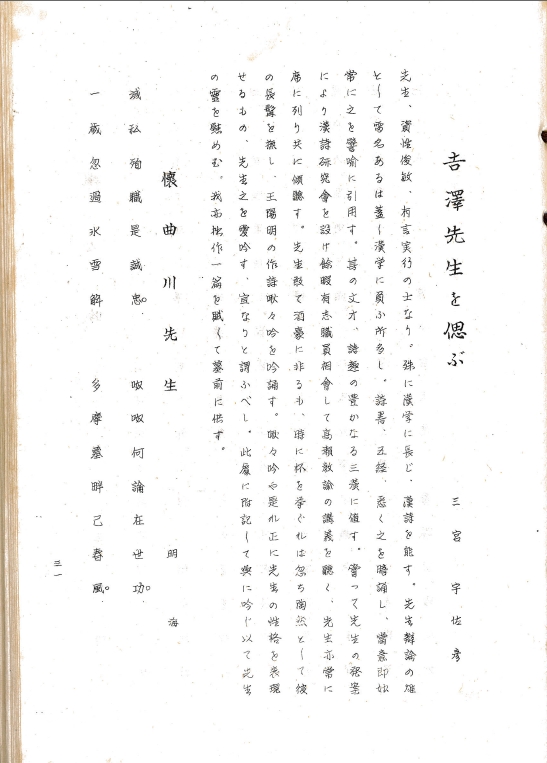 吉澤先生を偲ぶ
三宮宇佐彦
先生、資性俊敏、朽言実行の士なり。殊に漢学に長じ、漢詩を能す。先生辯論の雄
として雷名あるは蓋し漢学に負ふ所多し。詩書、五経、悉く之を暗誦し、當意即妙
常に之を譬喩に引用す。其の文才、詩趣の豊かなる三漢に値す。嘗って先生の発案
により漢詩研究會を設け餘暇有志職員相會して高瀬教諭の講義を聴く、先生亦常に
席に列り共に傾聴す。先生敢て酒豪に非るも、時に杯を挙ぐれは忽ち陶然として彼
の長髯を撫し、王陽明の作詩啾々吟を吟誦す。啾々吟や是れ正に先生の性格を表現
せるもの、先生之を愛吟す、宜なりと謂ふべし。此處に附記して共に吟じ以て先生
の靈を慰めむ。我亦拙作一篇を賦して墓前に供す。
懐曲川先生
明海
滅私殉職是誠忠。 呶呶何論在世功。
一歳忽過氷雪解 多摩墓畔己春風。
三一